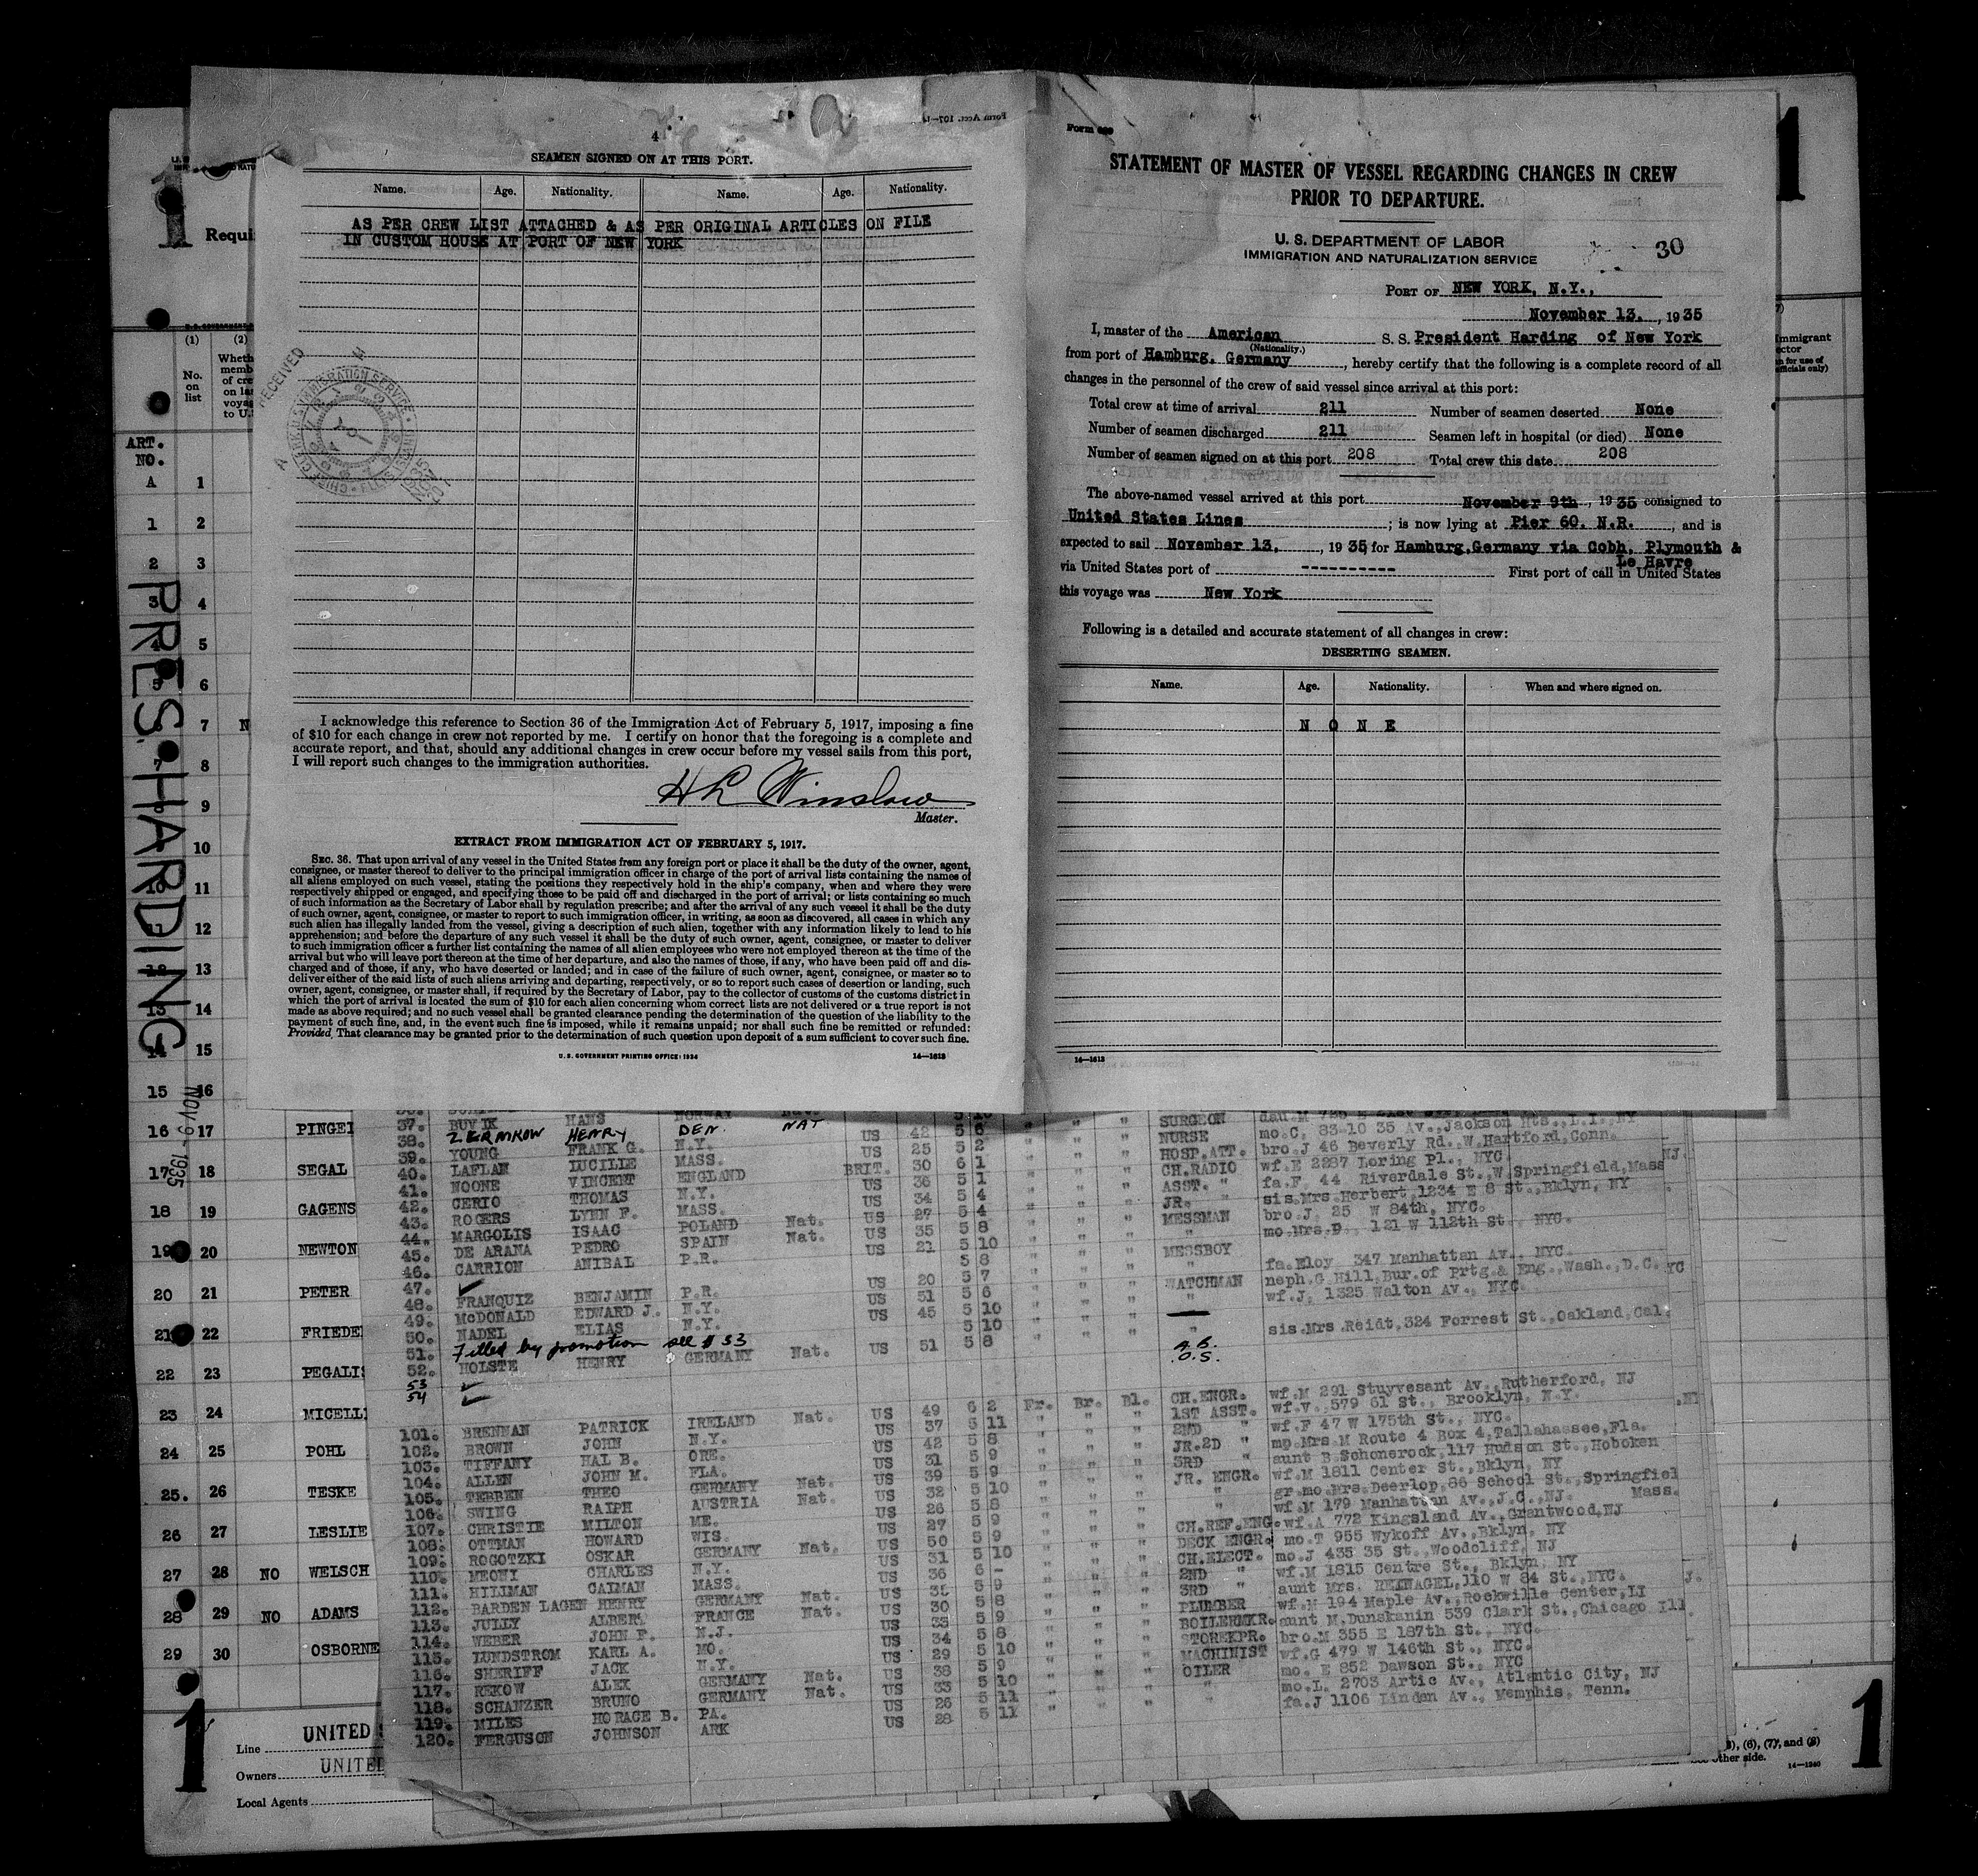 4
SEAMEN SIGNED ON AT THIS PORT.
Name. Age. Nationality. Name. Age. Nationality.
AS PER CREW LIST ATTACHED & AS PER ORIGINAL ARTICLES ON FILE
IN CUSTOM HOUSE AT PORT OF NEW YORK
RECEIVED
I acknowledge this reference to Section 36 of the Immigration Act of February 5, 1917, imposing a fine
of $10 for each change in crew not reported by me. I certify on honor that the foregoing is a complete and
accurate report, and that, should any additional changes in crew occur before my vessel sails from this port,
I will report such changes to the immigration authorities.
H L Winslow
Master.
EXTRACT FROM IMMIGRATION ACT OF FEBRUARY 5, 1917.
SEC. 36. That upon arrival of any vessel in the United States from any foreign port or place it shall be the duty of the owner, agent,
consignee, or master thereof to deliver to the principal immigration officer in charge of the port of arrival lists containing the names of
all aliens employed on such vessel, stating the positions they respectively hold in the ship's company, when and where they were
respectively shipped or engaged, and specifying those to be paid off and discharged in the port of arrival; or lists containing so much
of such information as the Secretary of Labor shall by regulation prescribe; and after the arrival of any such vessel it shall be the duty
of such owner, agent, consignee, or master to report to such immigration officer, in writing, as soon as discovered, all cases in which any
such alien has illegally landed from the vessel, giving a description of such alien, together with any information likely to lead to his
apprehension; and before the departure of any such vessel it shall be the duty of such owner, agent, consignee, or master to deliver
to such immigration officer a further list containing the names of all alien employees who were not employed thereon at the time of the
arrival but who will leave port thereon at the time of her departure, and also the names of those, if any, who have been paid off and dis-
charged and of those, if any, who have deserted or landed; and in case of the failure of such owner, agent, consignee, or master so to
deliver either of the said lists of such aliens arriving and departing, respectively, or so to report such cases of desertion or landing, such
owner, agent, consignee, or master shall, if required by the Secretary of Labor, pay to the collector of customs of the customs district in
which the port of arrival is located the sum of $10 for each alien concerning whom correct lists are not delivered or a true report is not
made as above required; and no such vessel shall be granted clearance pending the determination of the question of the liability to the
payment of such fine, and, in the event such fine is imposed, while it remains unpaid; nor shall such fine be remitted or refunded:
Provided, That clearance may be granted prior to the determination of such question upon deposit of a sum sufficient to cover such fine.
U. S. GOVERNMENT PRINTING OFFICE: 1934 14—1613
Form
STATEMENT OF MASTER OF VESSEL REGARDING CHANGES IN CREW
PRIOR TO DEPARTURE.
U. S. DEPARTMENT OF LABOR
IMMIGRATION AND NATURALIZATION SERVICE
30
PORT OF NEW YORK, N.Y.,
November 13, , 1935
I, master of the American S. S. President Harding of New York
(Nationality.)
from port of Hamburg, Germany , hereby certify that the following is a complete record of all
changes in the personnel of the crew of said vessel since arrival at this port:
Total crew at time of arrival 211 Number of seamen deserted None
Number of seamen discharged 211 Seamen left in hospital (or died) None
Number of seamen signed on at this port 208 Total crew this date 208
The above-named vessel arrived at this port November 9th , 1935 consigned to
United States Lines ; is now lying at Pier 60, N.R. , and is
expected to sail November 13, , 1935, for Hamburg, Germany via Cobh, Plymouth &
Le Havre
via United States port of ---------- First port of call in United States
this voyage was New York
Following is a detailed and accurate statement of all changes in crew:
DESERTING SEAMEN.
Name. Age. Nationality. When and where signed on.
N O N E
14—1613
1
1
Requi
(1) (2)
No. on list
ART. NO.
PRES. HARDING
NOV 9 - 1935
A 1
1 2
2 3
3 4
4 5
5 6
7 N
7 8
9
10
11
12
12 13
13 14
14 15
15 16
16 17 PINGE
17 18 SEGAL
18 19 GAGENS
19 20 NEWTON
20 21 PETER
21 22 FRIEDE
22 23 PEGALIS
23 24 MICELL
24 25 POHL
25. 26 TESKE
26 27 LESLIE
27 28 NO WELSCH
28 29 NO ADAMS
29 30 OSBORNE
37. BUVIK HANS NORWAY Nat. SURGEON
38. ZERMKOW HENRY DEN. NAT US 42 5 6 NURSE mo.C, 83-10 35 Av.,Jackson Hts.,L.I.,NY
39. YOUNG FRANK G. N.Y. US 25 5 2 HOSP.ATT. bro.J 46 Beverly Rd.,W.Hartford,Conn.
40. LAFLAN LUCILLE MASS. BRIT. 30 6 1 CH.RADIO wf.E 2287 Loring Pl., NYC.
41. NOONE VINCENT ENGLAND US 36 5 1 ASST. " fa.F. 44 Riverdale St.,W.Springfield,Mass
42. CERIO THOMAS N.Y. US 34 5 4 JR. " sis.Mrs.Herbert,1234 E 8 St.,Bklyn, NY
43. ROGERS LYNN F. MASS. US 27 5 4 MESSMAN bro.J. 25 W 84th, NYC.
44. MARGOLIS ISAAC POLAND Nat. US 35 5 8 " mo.Mrs.D. 121 W 112th St., NYC.
45. DE ARANA PEDRO SPAIN Nat. US 21 5 10 MESSBOY
46. CARRION ANIBAL P.R. 5 8 " fa.Eloy 347 Manhattan Av., NYC.
47. US 20 5 7 WATCHMAN neph.G.Hill,Bur.of Prtg.& Eng.,Wash.,D.C.
48. FRANQUIZ BENJAMIN P.R. US 51 5 6 " wf.J. 1325 Walton Av., NYC.
49. McDONALD EDWARD J. N.Y. US 45 5 10
50. NADEL ELIAS N.Y. 5 10 " sis.Mrs.Reidt,324 Forrest St.,Oakland,Cal.
51. Filled by promotion see # 53 US 51 5 8 A.B.
52. HOLSTE HENRY GERMANY Nat. O.S.
53
54
101. BRENNAN PATRICK IRELAND Nat. US 49 6 2 Fr. Br. Bl. CH.ENGR. wf.M 291 Stuyvesant Av.,Rutherford, NJ
102. BROWN JOHN N.Y. US 37 5 11 1ST ASST. wf.V. 579 61 St., Brooklyn, N.Y.
103. TIFFANY HAL B. ORE. US 42 5 8 2ND " wf.F 47 W 175th St., NYC.
104. ALLEN JOHN M. FLA. US 31 5 9 JR.2D " mo.Mrs M Route 4 Box 4,Tallahassee,Fla.
105. TEBBEN THEO GERMANY Nat. US 39 5 9 3RD " aunt B.Schonerock,117 Hudson St.,Hoboken
106. SWING RALPH AUSTRIA Nat. US 32 5 10 JR. ENGR. wf.M 1811 Center St.,Bklyn, NY
107. CHRISTIE MILTON ME. US 26 5 8 " gr.mo.Mrs.Deerlop,86 School St.,Springfiel Mass.
108. OTTMAN HOWARD WIS. US 27 5 9 " wf.M 179 Manhattan Av.,J.C.,NJ.
109. ROGOTZKI OSKAR GERMANY Nat. US 50 5 9 CH.REF.ENG. wf.A 772 Kingsland Av.,Grantwood,NJ
110. MEONI CHARLES N.Y. US 31 5 10 DECK ENGR. mo.T 955 Wykoff Av.,Bklyn, NY
111. HILLMAN CALMAN MASS. US 36 6 - CH.ELECT. mo.J 435 35 St.,Woodcliff, NJ
112. BARDEN LAGEN HENRY GERMANY Nat. US 5 9 2ND " wf.M 1815 Centre St., Bklyn, NY
113. JULLY ALBERT FRANCE Nat. US 30 5 8 3RD " aunt Mrs. REINAGEL,110 W 84 St.,NYC.
114. WEBER JOHN F. N.J. US 5 9 PLUMBER wf.M 194 Maple Av.,Rockville Center,LI
115. LUNDSTROM KARL A. MO. US 34 5 8 BOILERMKR. aunt M.Dunskanin 539 Clark St.,Chicago Ill
116. SHERIFF JACK N.Y. US 29 5 10 STOREKPR. bro.M 355 E 187th St., NYC.
117. REKOW ALEX GERMANY Nat. US 38 5 9 MACHINIST wf.G 479 W 146th St., NYC.
118. SCHANZER BRUNO GERMANY Nat. US 33 5 10 OILER mo. E 852 Dawson St., NYC
119. MILES HORACE B. PA. US 26 5 11 " mo.L. 2703 Artic Av., Atlantic City, NJ
120. FERGUSON JOHNSON ARK US 28 5 11 " fa.J 1106 Linden Av., Memphis, Tenn.
1
Line UNITED
Owners UNITED
Local Agents
(6), (7), and (8)
other side.
14—1240
1